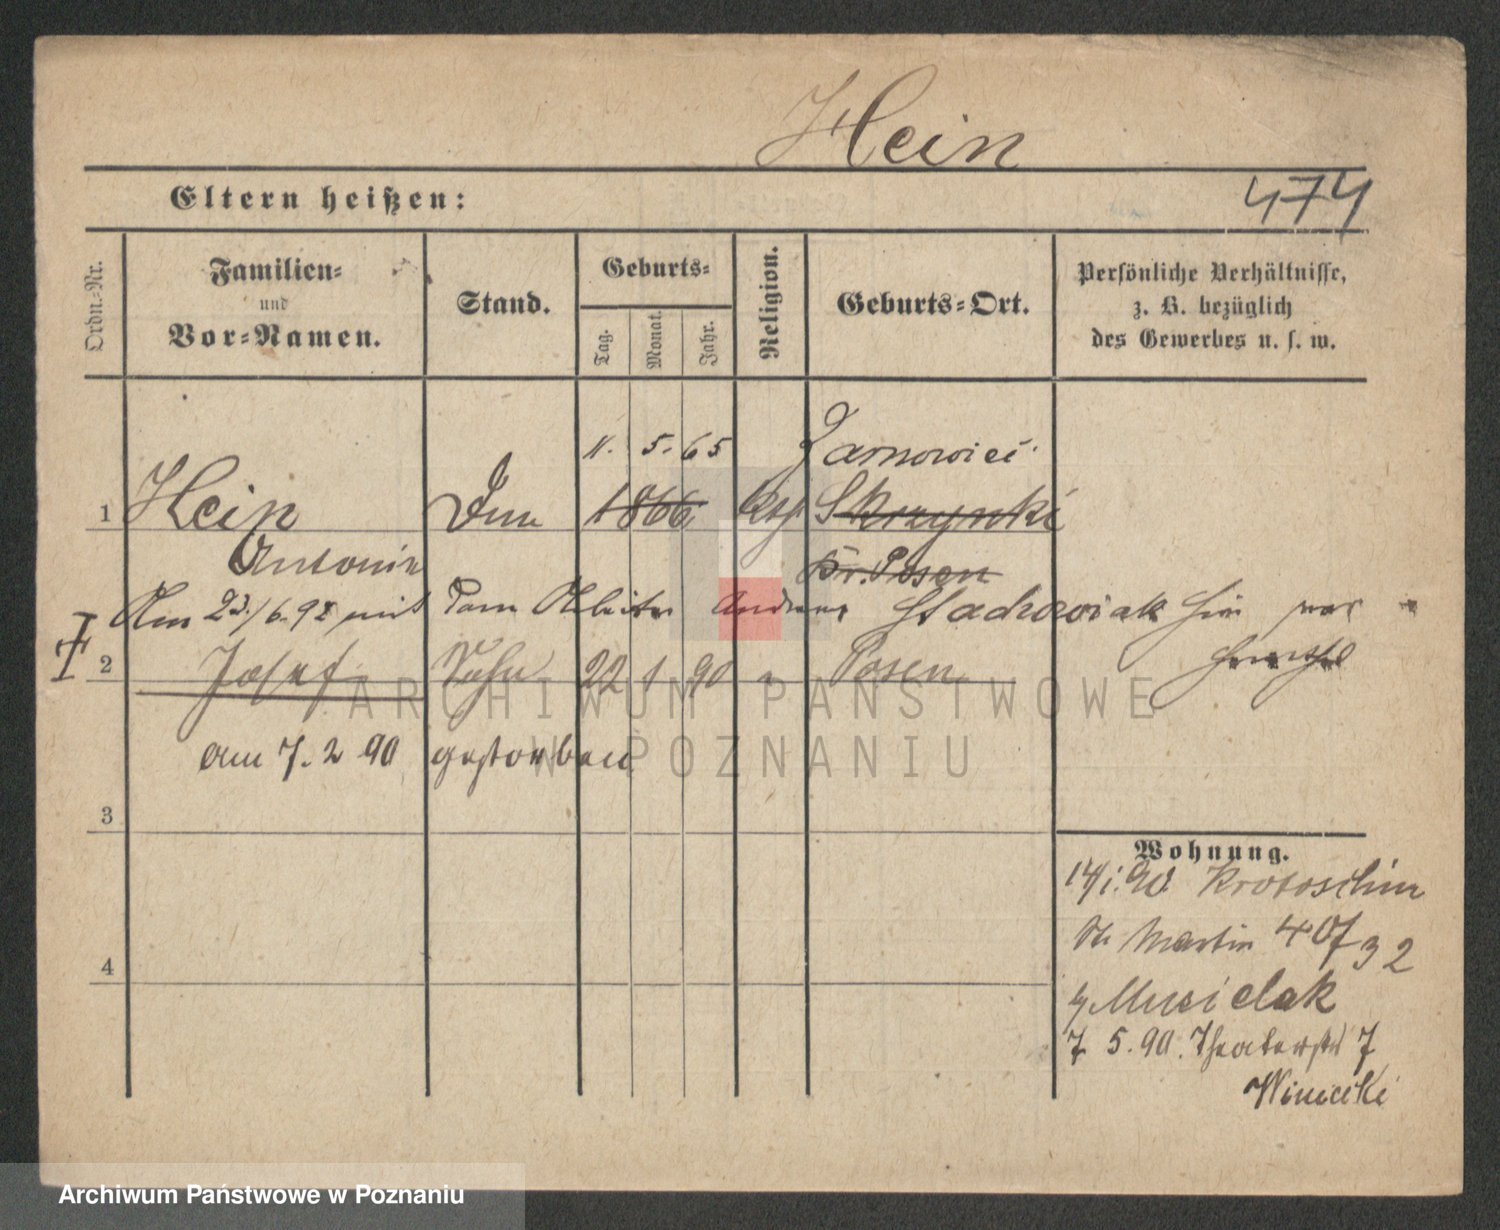 Hein
Eltern heißen:
474
Ordn.-Nr.
Familien-
und
Vor-Namen.
Stand.
Geburts-
Tag.
Monat.
Jahr.
Religion.
Geburts-Ort.
Persönliche Verhältnisse,
z. B. bezüglich
des Gewerbes u. s. w.
5. 65
1 Hein 1866 kth Skrzynki
Antonie Kr. Posen
Am 23./6. mit dem Arbeiter Stachowiak
2 Josef Sohn 22 1 90 " Posen
am 7. 2 90 gestorben
3
4
Wohnung.
14/1. 90. Krotoschin
St Martin 40 32
Musielak
7 5. 90. Theaterstr 7
ARCHIWUM PAŃSTWOWE
W POZNANIU
Archiwum Państwowe w Poznaniu